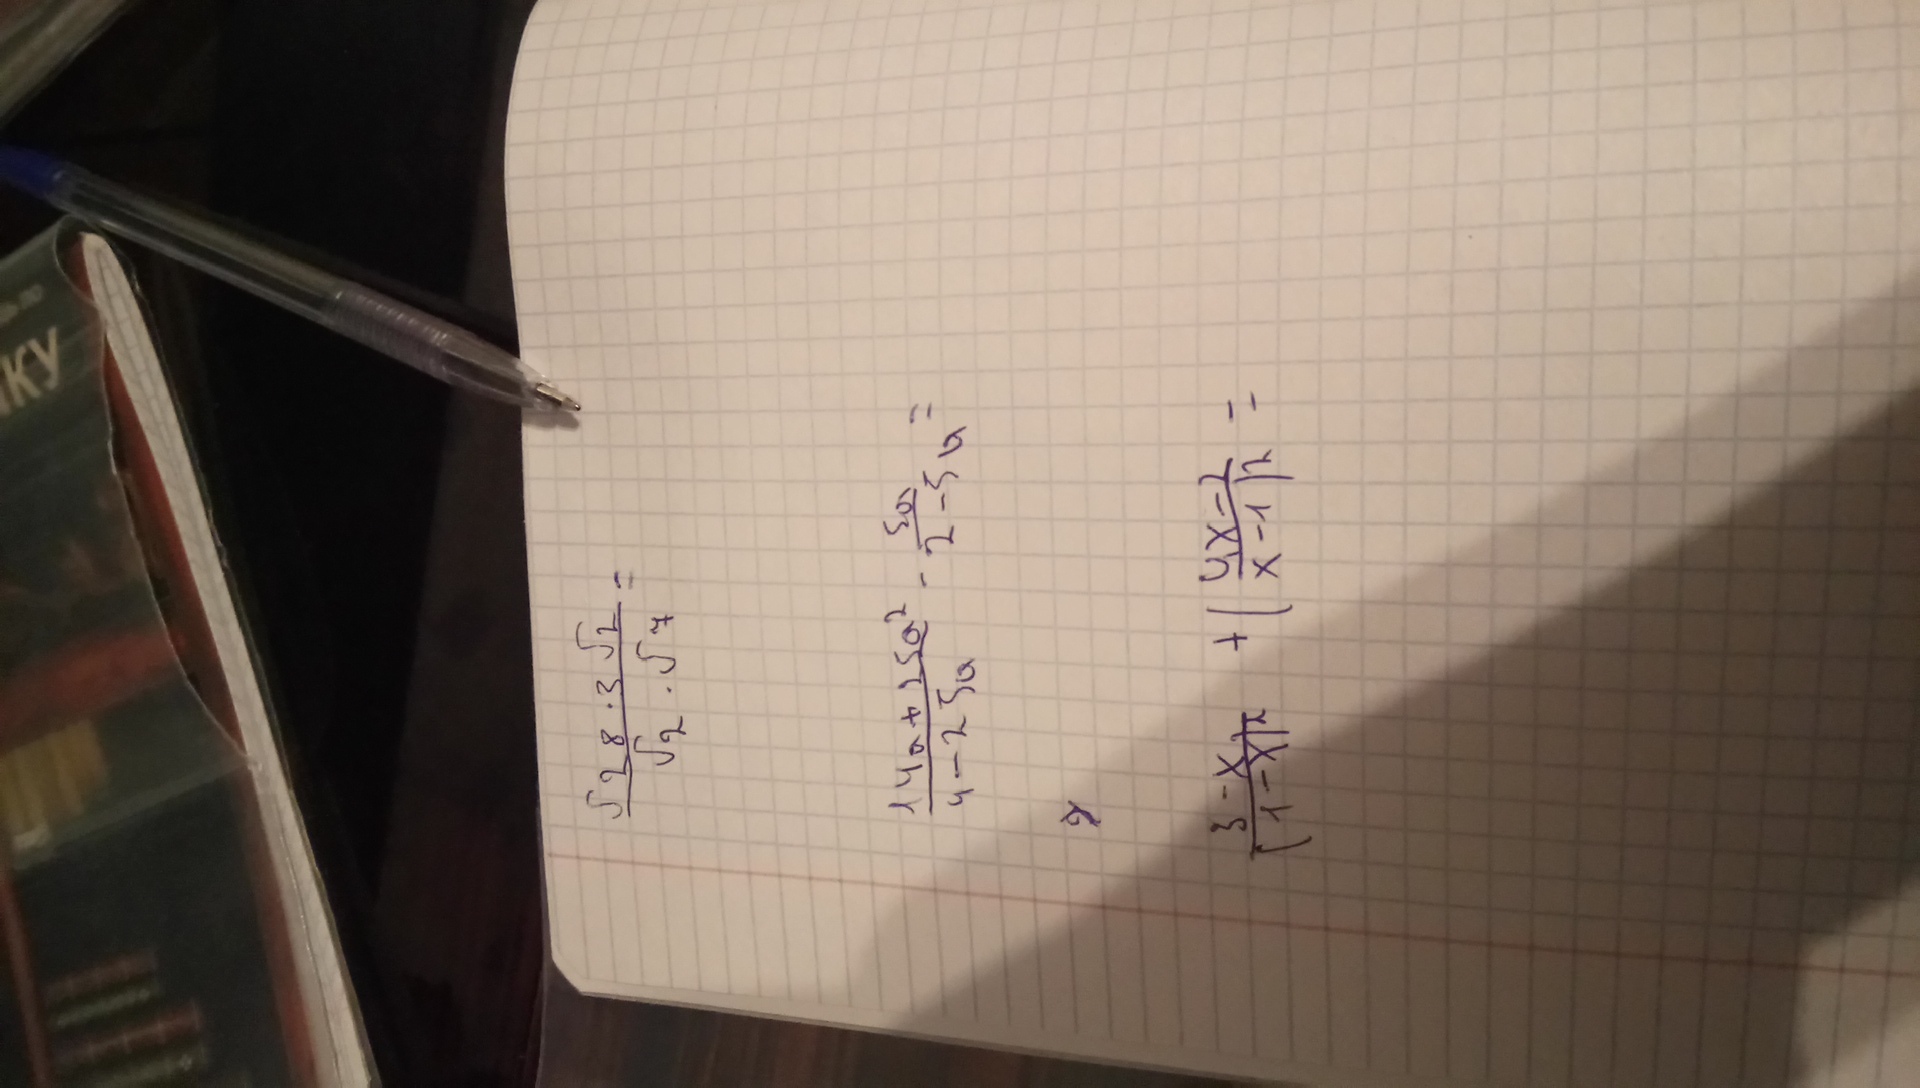 √28 · 3√2 / √2 · √7 =
14a + 25a² / 4 - 25a - 5a / 2 - 5a =
3 - x / (1 - x)² + (4x - 2 / x - 1)² =
КУ